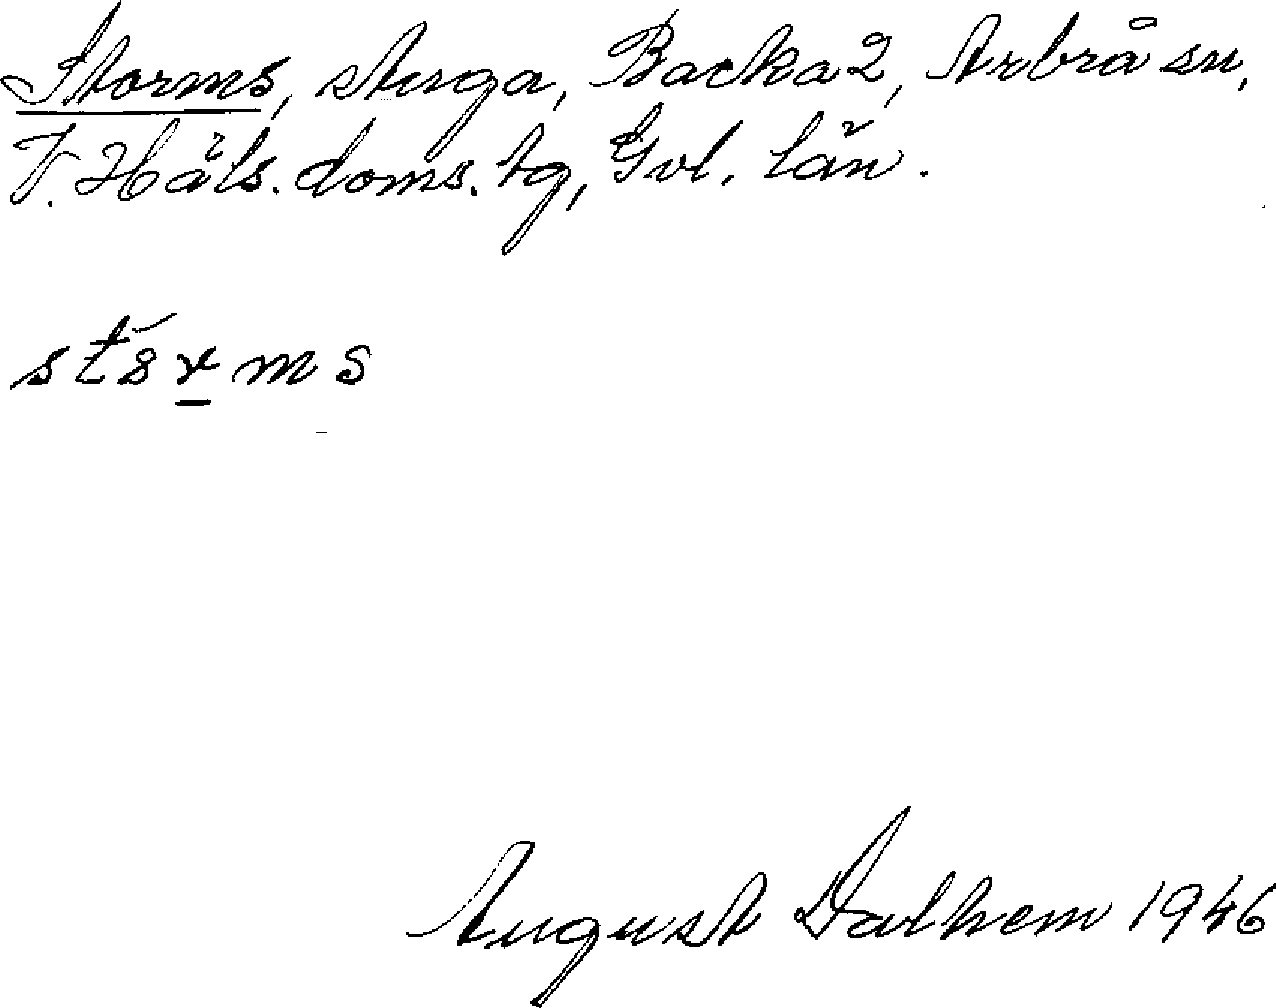 Storms, stuga, Backa 2, Arbrå sn,
V. Häls. doms. tg, Gvl. län.
August Dalhem 1946